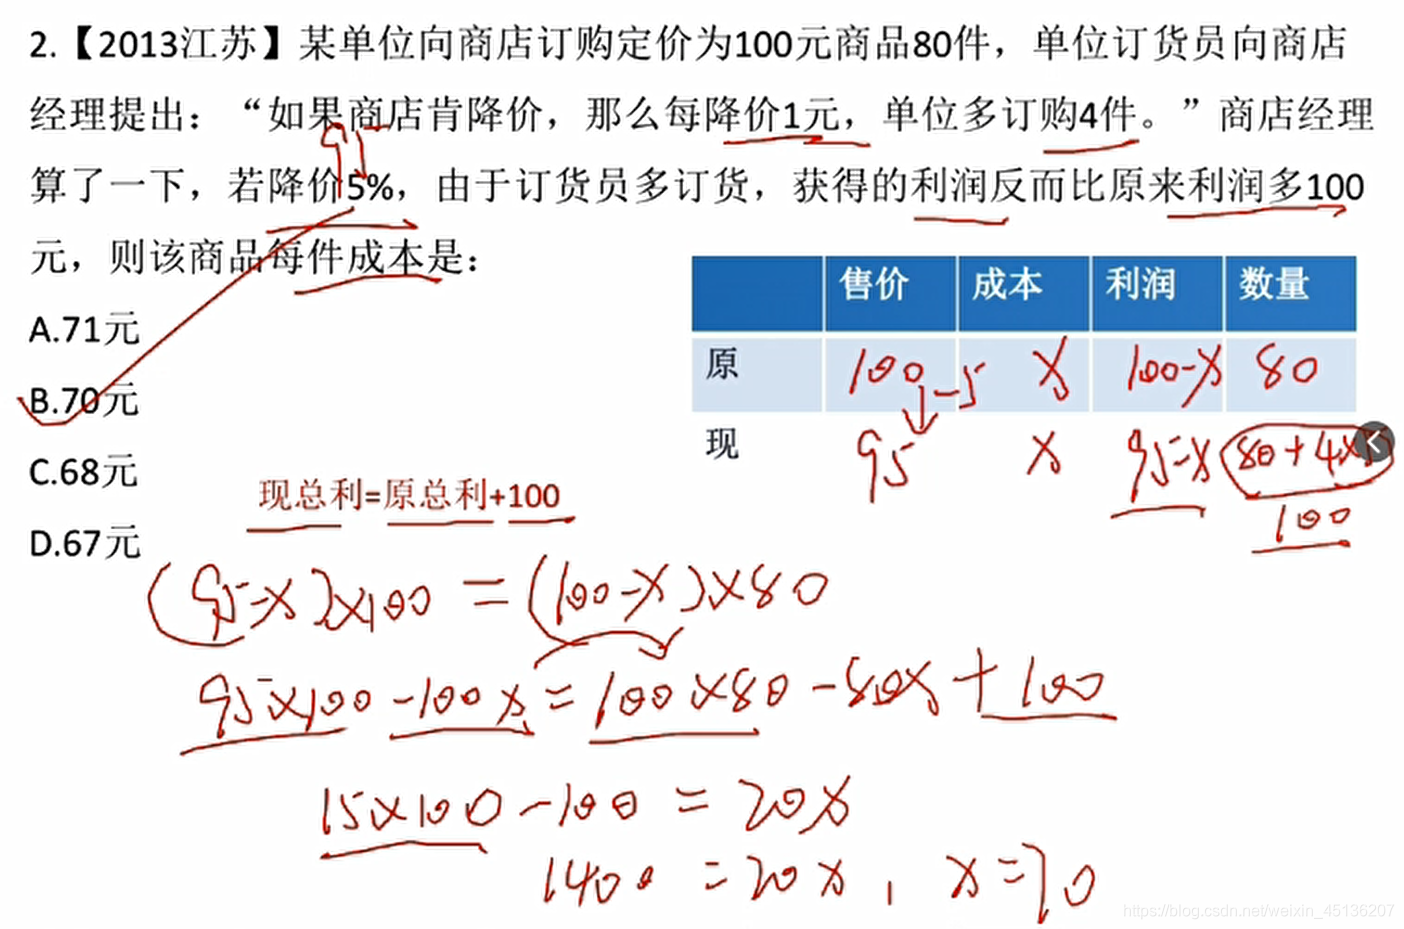 2.【2013江苏】某单位向商店订购定价为100元商品80件，单位订货员向商店
经理提出：“如果商店肯降价，那么每降价1元，单位多订购4件。”商店经理
95
算了一下，若降价5%，由于订货员多订货，获得的利润反而比原来利润多100
元，则该商品每件成本是：
A.71元
B.70元
C.68元
D.67元
售价 成本 利润 数量
原 100 -5 x 100-x 80
现 95 x 95-x 80+4×5
100
现总利=原总利+100
(95-x)×100=(100-x)×80
95×100-100x=100×80-80x+100
15×100-100=20x
1400=20x, x=70
https://blog.csdn.net/weixin_45136207